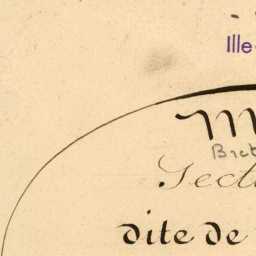 Ille
M
Bret
Secti
dite de